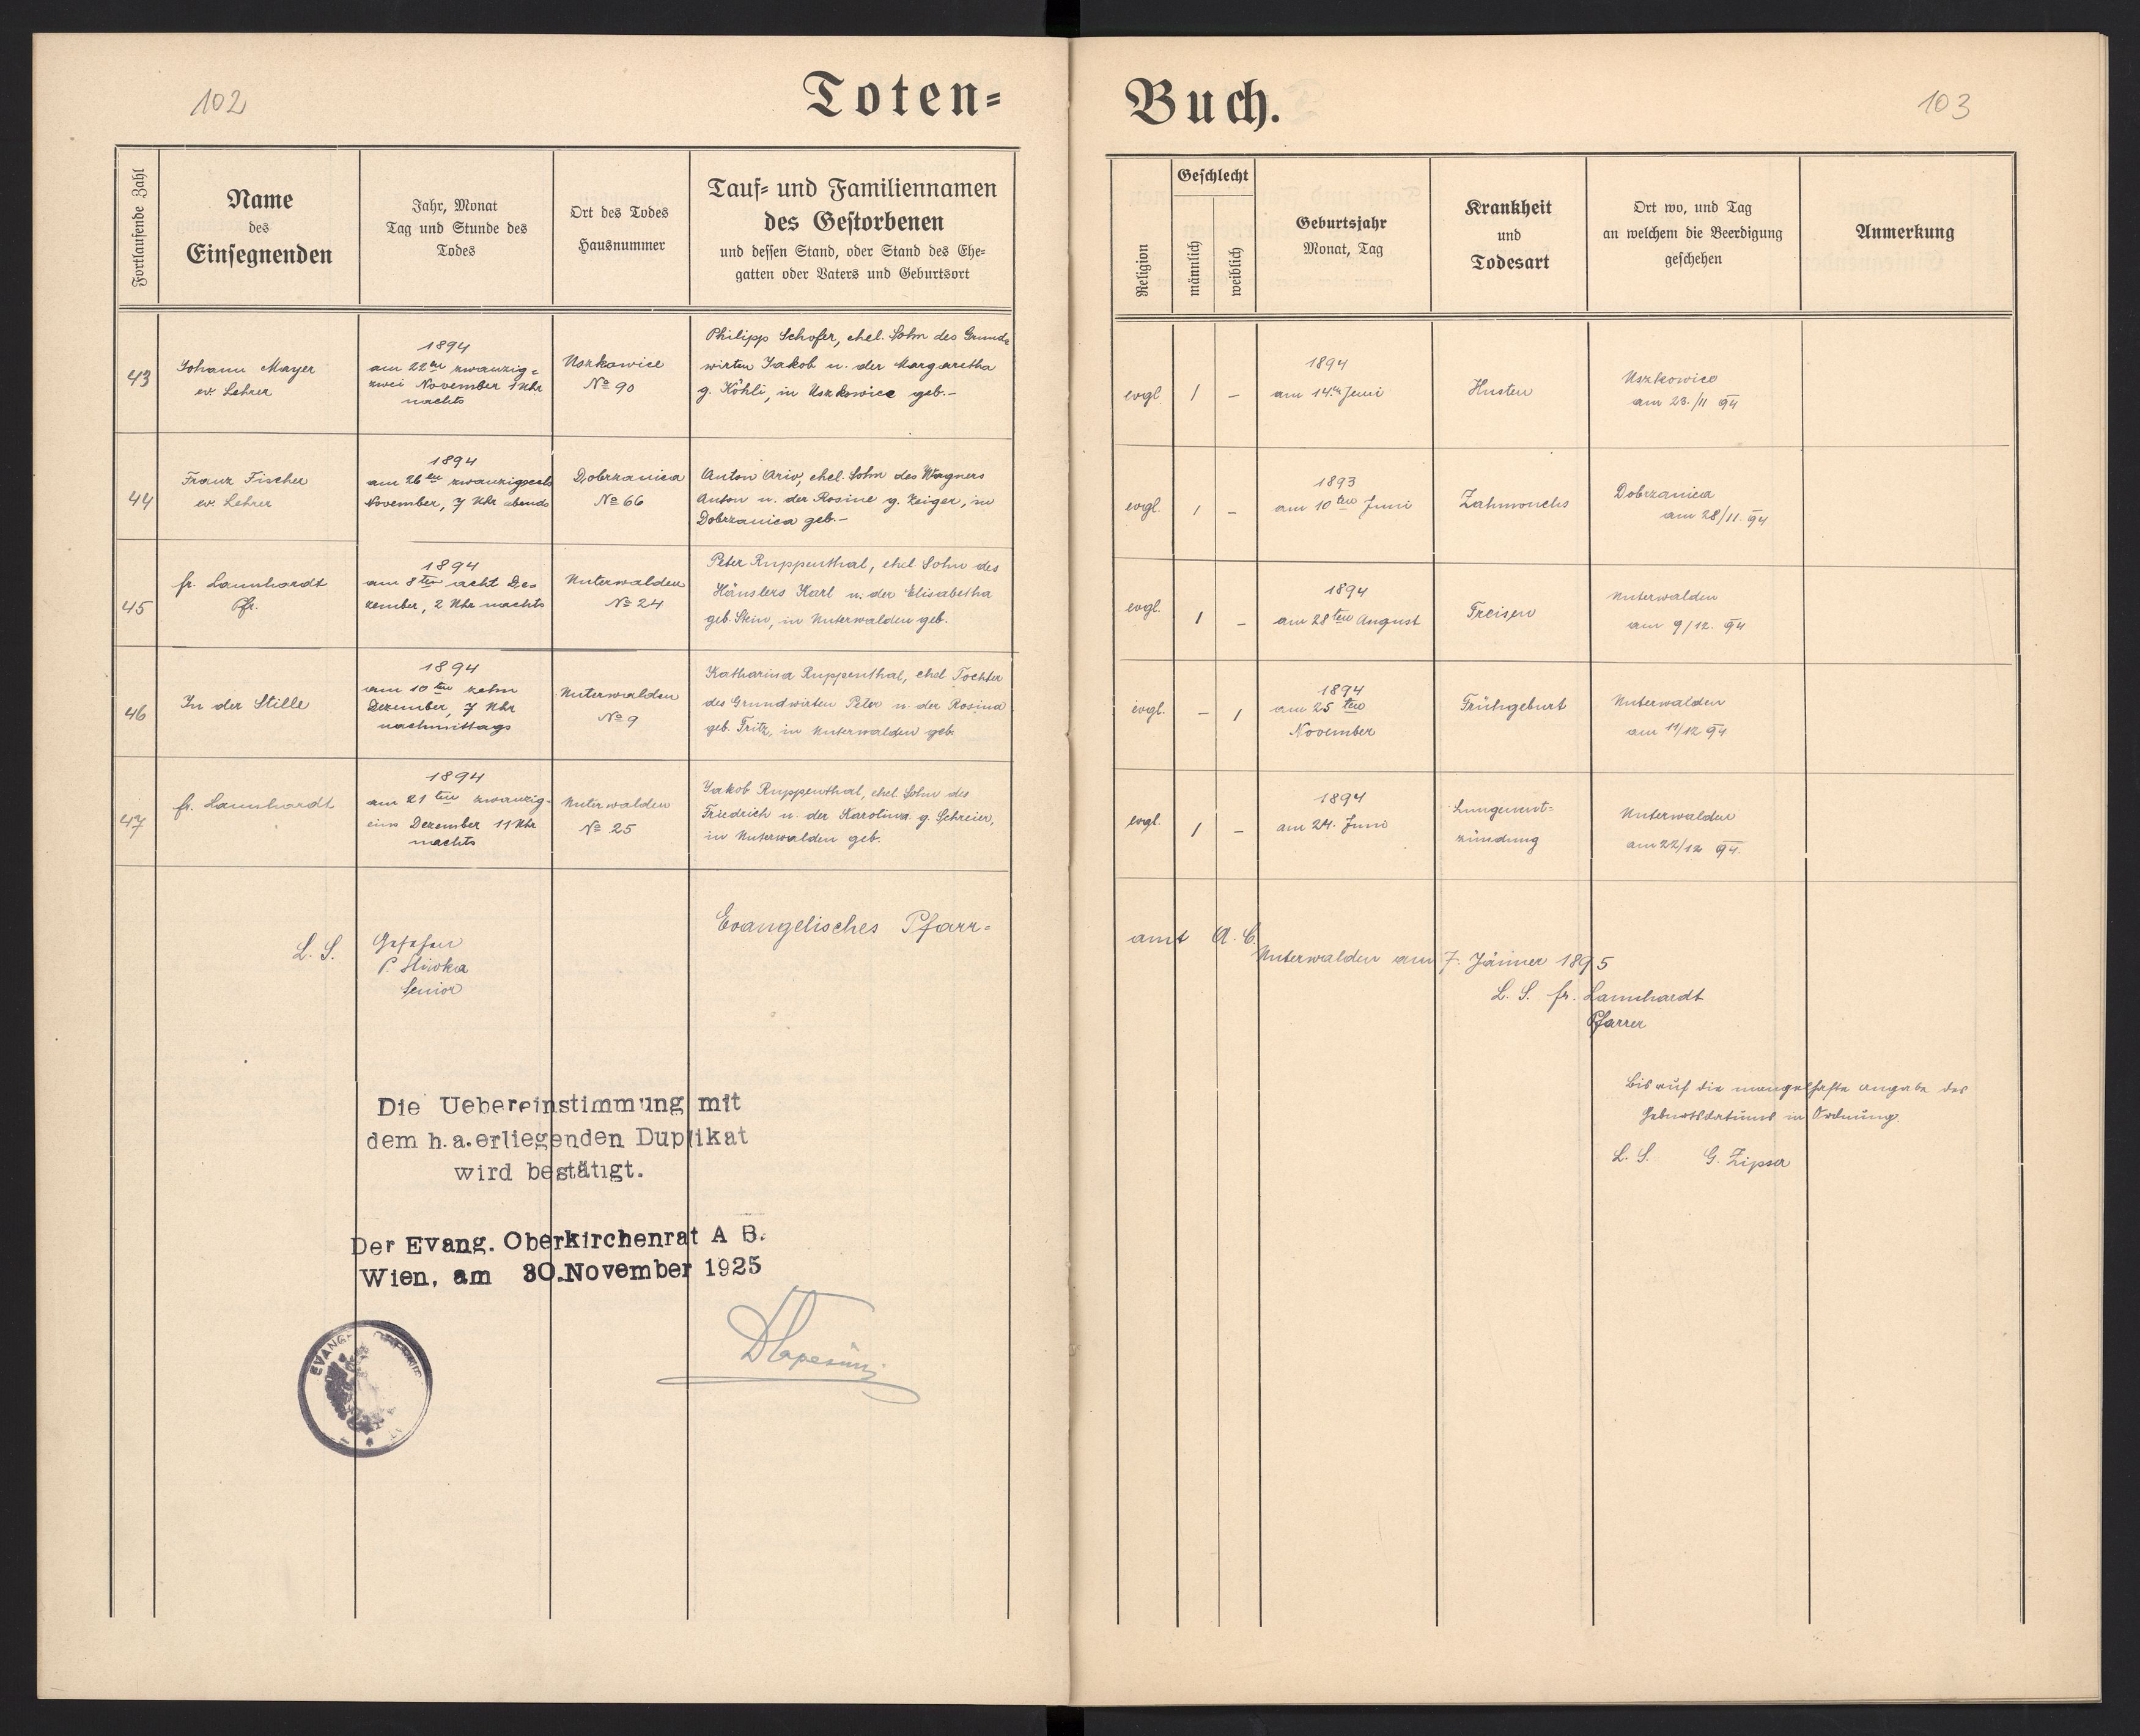 102
Toten=
Fortlaufende Zahl
Name
des
Einsegnenden
Jahr, Monat
Tag und Stunde des
Todes
Ort des Todes
Hausnummer
Tauf= und Familiennamen
des Gestorbenen
und dessen Stand, oder Stand des Ehe=
gatten oder Vaters und Geburtsort
43
Johann Mayer
ev. Lehrer
1894
am 22ten zwanzig=
zwei November 1 Uhr
nachts
Uszkowice
No 90
Philipp Schofer, ehel. Sohn des Grund=
wirten Jakob u. der Margaretha
g. Köhli, in Uszkowice geb.-
44
Franz Fischer
ev. Lehrer
1894
am 26ten zwanzigsechs
November, 7 Uhr abends
Dobrzanica
No 66
Anton Ariv, ehel. Sohn des Wagners
Anton u. der Rosine g. Zeiger, in
Dobrzanica geb.-
45
fr. Lamnhardt
Pfr.
1894
am 8ten acht De=
zember, 2 Uhr nachts
Unterwalden
No 24
Peter Ruppenthal, ehel. Sohn des
Häuslers Karl u. der Elisabetha
geb. Stein, in Unterwalden geb.
46
In der Stille
1894
am 10ten zehn
Dezember, 7 Uhr
nachmittags
Unterwalden
No 9
Katharina Ruppenthal, ehel Tochter
des Grundwirten Peter u. der Rosina
geb. Fritz, in Unterwalden geb.
47
fr. Lamnhardt
1894
am 21ten zwanzig=
eins Dezember 11 Uhr
nachts
Unterwalden
No 25
Jakob Ruppenthal, ehel. Sohn des
Friedrich u. der Karolina g. Schreier,
in Unterwalden geb.
L. S.
Gesehen
Senior
Evangelisches Pfarr=
Die Uebereinstimmung mit
dem h.a.erliegenden Duplikat
wird bestätigt.
Der Evang. Oberkirchenrat A B.
Wien, am 30.November 1925
EVANG
Buch.
103
Religion
Geschlecht
männlich
weiblich
Geburtsjahr
Monat, Tag
Krankheit
und
Todesart
Ort wo, und Tag
an welchem die Beerdigung
geschehen
Anmerkung
evgl.
1
-
1894
am 14ten Juni
Husten
Uszkowice
am 23./11 94
evgl.
1
-
1893
am 10ten Juni
Zahnwuchs
Dobrzanica
am 28/11. 94
evgl.
1
-
1894
am 28ten August
Freisen
Unterwalden
am 9/12. 94
evgl.
-
1
1894
am 25ten
November
Frühgeburt
Unterwalden
am 11/12 94
evgl.
1
-
1894
am 24. Juni
Lungenent=
zündung
Unterwalden
am 22/12 94.
amt A. C.
Unterwalden am 7. Jänner 1895
L. S. fr. Lamnhardt
Pfarrer
Bis auf die mangelhafte Angabe des
Geburtsdatums in Ordnung.
L. S. G. Zipser